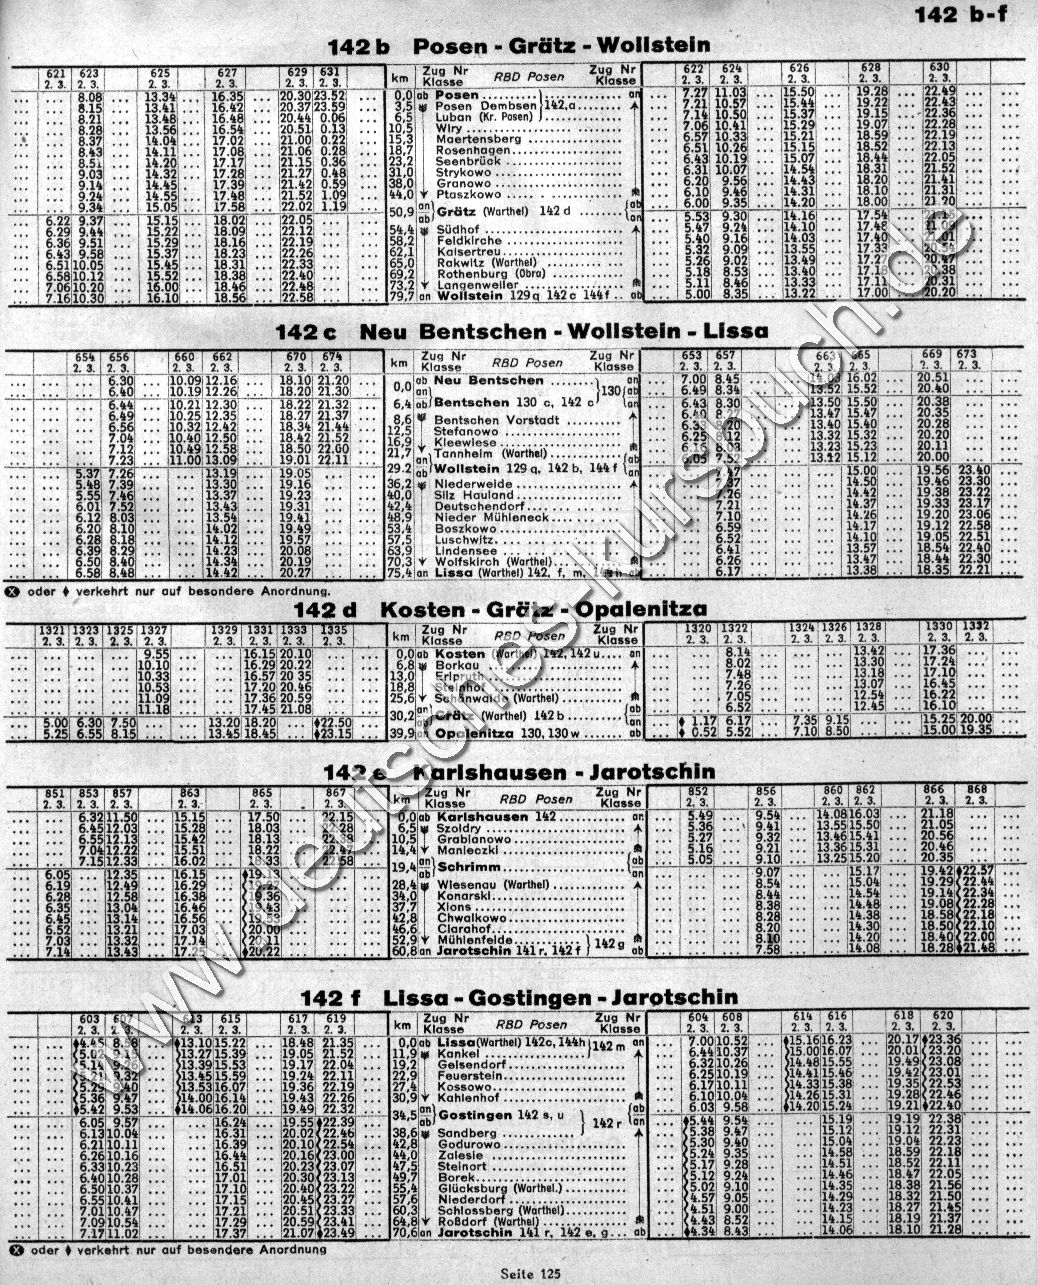 142 b-f
142 b Posen - Grätz - Wollstein
621 623 625 627 629 631 km Zug Nr Klasse RBD Posen Zug Nr Klasse 622 624 626 628 630
2. 3. 2. 3. 2. 3. 2. 3. 2. 3. 2. 3. 2. 3. 2. 3. 2. 3. 2. 3. 2. 3.
8.08 13.34 16.35 20.30 23.52 0,0 ab Posen an 7.27 11.03 15.50 19.28 22.49
8.15 13.41 16.42 20.37 23.59 3,5 Posen Dembsen 142,a 7.21 10.57 15.44 19.22 22.43
8.21 13.48 16.48 20.44 0.06 6,5 Luban (Kr. Posen) 7.14 10.50 15.37 19.15 22.36
8.28 13.56 16.54 20.51 0.13 10,5 Wiry 7.06 10.41 15.29 19.07 22.28
8.37 14.04 17.02 21.00 0.22 15,3 Maertensberg 6.57 10.33 15.21 18.59 22.19
8.43 14.11 17.08 21.06 0.28 18,7 Rosenhagen 6.51 10.26 15.15 18.52 22.13
8.51 14.20 17.17 21.15 0.36 23,2 Seenbrück 6.43 10.19 15.07 18.44 22.05
9.03 14.32 17.28 21.27 0.48 31,0 Strykowo 6.31 10.07 14.54 18.31 21.52
9.14 14.45 17.39 21.42 0.59 38,0 Granowo 6.20 9.56 14.43 18.20 21.41
9.24 14.55 17.48 21.52 1.09 44,0 Ptaszkowo 6.10 9.46 14.31 18.10 21.31
9.34 15.05 17.58 22.02 1.19 50,9 an Grätz (Warthel) 142 d ab 6.00 9.35 14.20 18.00 21.20
6.22 9.37 15.15 18.02 22.05 ab an 5.53 9.30 14.16 17.54
6.29 9.44 15.22 18.09 22.12 54,4 Südhof 5.47 9.24 14.10 17.48
6.36 9.51 15.29 18.16 22.19 58,2 Feldkirche 5.40 9.16 14.03 17.40
6.43 9.58 15.37 18.23 22.26 62,1 Kaisertreu 5.32 9.09 13.55 17.33
6.51 10.05 15.45 18.31 22.33 65,0 Rakwitz (Warthel) 5.26 9.02 13.49 17.27 20.47
6.58 10.12 15.52 18.38 22.40 69,2 Rothenburg (Obra) 5.18 8.53 13.40 17.18 20.38
7.06 10.20 16.00 18.46 22.48 73,2 Langenweiler 5.11 8.46 13.33 17.11 20.31
7.16 10.30 16.10 18.56 22.58 79,7 an Wollstein 129 q 142 c 144 f ab 5.00 8.35 13.22 17.00 20.20
142 c Neu Bentschen - Wollstein - Lissa
654 656 660 662 670 674 km Zug Nr Klasse RBD Posen Zug Nr Klasse 653 657 663 665 669 673
2. 3. 2. 3. 2. 3. 2. 3. 2. 3. 2. 3. 2. 3. 2. 3. 2. 3. 2. 3. 2. 3. 2. 3.
6.30 10.09 12.16 18.10 21.20 0,0 ab Neu Bentschen an 7.00 8.45 16.02 20.51
6.40 10.19 12.26 18.20 21.30 an 130 ab 6.49 8.34 13.52 15.52 20.40
6.44 10.21 12.30 18.22 21.32 6,4 ab Bentschen 130 c, 142 c an 6.43 8.30 13.50 15.50 20.38
6.49 10.25 12.35 18.27 21.37 8,6 Bentschen Vorstadt 13.47 15.47 20.35
6.56 10.32 12.42 18.34 21.44 12,5 Stefanowo 6.33 8.20 13.40 15.40 20.28
7.04 10.40 12.50 18.42 21.52 16,9 Kleewiese 6.25 8.12 13.32 15.32 20.20
7.12 10.49 12.58 18.50 22.00 21,7 Tannheim (Warthel) 13.23 15.23 20.11
7.23 11.00 13.09 19.01 22.11 29.2 an Wollstein 129 q, 142 b, 144 f ab 6.05 7.52 13.12 15.12 20.00
5.37 7.26 13.19 19.05 ab an 15.00 19.56 23.40
5.48 7.39 13.30 19.16 36,2 Niederweide 14.50 19.46 23.30
5.55 7.46 13.37 19.23 40,0 Silz Hauland 7.26 14.42 19.38 23.22
6.01 7.52 13.43 19.31 42,4 Deutschendorf 7.21 14.37 19.33 23.17
6.12 8.03 13.54 19.41 48,9 Nieder Mühleneck 7.10 14.26 19.20 23.06
6.20 8.10 14.02 19.49 53,4 Boszkowo 6.59 14.17 19.12 22.58
6.28 8.18 14.12 19.57 57,5 Luschwitz 6.52 14.10 19.05 22.51
6.39 8.29 14.23 20.08 63,9 Lindensee 6.41 13.57 18.54 22.40
6.50 8.40 14.34 20.19 70,3 Wolfskirch (Warthel) 6.26 13.47 18.44 22.30
6.58 8.48 14.42 20.27 75,4 an Lissa (Warthel) 142, f, m, ab 6.17 13.38 18.35 22.21
oder ♦ verkehrt nur auf besondere Anordnung.
142 d Kosten - Grätz - Opalenitza
1321 1323 1325 1327 1329 1331 1333 1335 km Zug Nr Klasse RBD Posen Zug Nr Klasse 1320 1322 1324 1326 1328 1330 1332
2. 3. 2. 3. 2. 3. 2. 3. 2. 3. 2. 3. 2. 3. 2. 3. 2. 3. 2. 3. 2. 3. 2. 3. 2. 3. 2. 3. 2. 3.
9.55 16.15 20.10 0,0 ab Kosten (Warthel) 142, 142 u an 8.14 13.42 17.36
10.10 16.29 20.22 6,8 Borkau 8.02 13.30 17.24
10.33 16.57 20 35 13,0 Erlpruth 7.48 13.18 17.10
10.53 17.20 20.46 18,8 Steinhof 7.26 13.07 16.45
11.09 17.36 20.59 25,6 Schönwalde (Warthel) 7.05 12.54 16.22
11.18 17.45 21.08 30,2 an Grätz (Warthel) 142 b ab 6.52 12.45 16.10
5.00 6.30 7.50 13.20 18.20 ♦22.50 ab an ♦ 1.17 6.17 7.35 9.15 15.25 20.00
5.25 6.55 8.15 13.45 18.45 ♦23.15 39,9 an Opalenitza 130, 130 w ab ♦ 0.52 5.52 7.10 8.50 15.00 19.35
142 e Karlshausen - Jarotschin
851 853 857 863 865 867 km Zug Nr Klasse RBD Posen Zug Nr Klasse 852 856 860 862 866 868
2. 3. 2. 3. 2. 3. 2. 3. 2. 3. 2. 3. 2. 3. 2. 3. 2. 3. 2. 3. 2. 3. 2. 3.
6.32 11.50 15.15 17.50 22.15 0,0 ab Karlshausen 142 an 5.49 9.54 14.08 16.03 21.18
6.45 12.03 15.28 18.03 6,5 Szoldry 5.36 9.41 13.55 15.50 21.05
6.55 12.13 15.42 18.13 10,5 Grabianowo 5.27 9.32 13.46 15.41 20.56
7.04 12.22 15.51 18.22 14,4 Manieczki 5.16 9.21 13.36 15.31 20.46
7.15 12.33 16.02 18.33 22.58 19,4 an Schrimm ab 5.05 9.10 13.25 15.20 20.35
6.05 12.35 16.15 ab an 9.07 15.17 19.42 ♦22.57
6.19 12.49 16.29 28,4 Wiesenau (Warthel) 8.54 15.04 19.29 22.44
6.28 12.58 16.38 19.36 34,0 Konarski 8.44 14.54 19.14 22.34
6.35 13.04 16.46 19.43 37,7 Xions 8.38 14.48 19.08 22.28
6.45 13.14 16.56 42,8 Chwalkowo 8.28 14.38 18.58 22.18
6.52 13.21 17.03 20.00 46,6 Clarahof 8.20 14.30 18.50 22.10
7.03 13.32 17.14 20.11 52,9 Mühlenfelde 142 g 8.10 14.20 18.40 22.00
7.14 13.43 17.25 ♦20.22 60,8 an Jarotschin 141 r, 142 f ab 7.58 14.08 18.28 ♦21.48
142 f Lissa - Gostingen - Jarotschin
603 607 613 615 617 619 km Zug Nr Klasse RBD Posen Zug Nr Klasse 604 608 614 616 618 620
2. 3. 2. 3. 2. 3. 2. 3. 2. 3. 2. 3. 2. 3. 2. 3. 2. 3. 2. 3. 2. 3.
♦4.45 8.58 ♦13.10 15.22 18.48 21.35 0,0 ab Lissa (Warthel) 142c, 144h 142 m an 7.00 10.52 ♦15.16 16.23 20.17 ♦23.36
13.27 15.39 19.05 21.52 11,9 Kankel 6.44 10.37 15.00 16.07 20.01 23.20
13.39 15.53 19.17 22.04 19,2 Geisendorf 6.32 10.26 14.48 15.55 19.49 23.08
13.45 15.59 19.24 22.11 22,9 Feuerstein 6.25 10.19 14.41 15.46 19.42 23.01
5.29 9.40 13.53 16.07 19.36 22.19 27,4 Kossowo 6.17 10.11 14.33 15.38 19.35 22.53
5.36 9.47 14.00 16.14 19.43 22.26 30,9 Kahlenhof 6.10 10.04 14.26 15.31 19.28 22.46
♦5.42 9.53 ♦14.06 16.20 19.49 22.32 34,5 an Gostingen 142 s, u ab 6.03 9.58 ♦14.20 15.24 19.21 ♦22.40
6.05 9.57 16.24 19.55 ♦22.39 ab 142 r an ♦5.44 9.54 15.19 19.19 22.38
6.13 10.04 16.31 20.02 22.46 38,6 Sandberg 5.38 9.47 15.12 19.12 22.31
6.21 10.11 16.39 20.10 22.54 42,8 Godurowo 5.30 9.40 15.04 19.04 22.23
6.26 10.16 16.44 20.16 23.00 44,0 Zalesie 5.24 9.35 14.58 18.59 22.18
6.33 10.23 16.51 20.23 23.07 47,5 Steinort 5.17 9.28 14.51 18.52 22.11
6.40 10.28 17.01 20.30 23.13 49,7 Borek 5.12 9.24 14.46 18.47 22.05
6.50 10.37 17.10 20.40 23.22 55,4 Glücksburg (Warthel.) 5.02 9.10 14.35 18.38 21.56
6.55 10.41 17.15 20.45 23.27 57,6 Niederdorf 4.57 9.05 14.29 18.32 21.50
7.01 10.47 17.21 20.51 23.33 60,3 Schlossberg (Warthel) 4.51 9.00 14.23 18.27 21.45
7.09 10.54 17.29 20.59 23.41 64,8 Roßdorf (Warthel) 4.43 8.52 14.15 18.19 21.37
7.17 11.02 17.37 21.07 ♦23.49 70,6 an Jarotschin 141 r, 142 e, g ab ♦4.34 8.43 14.06 18.10 21.28
oder ♦ verkehrt nur auf besondere Anordnung
Seite 125
www.deutsches-kursbuch.de